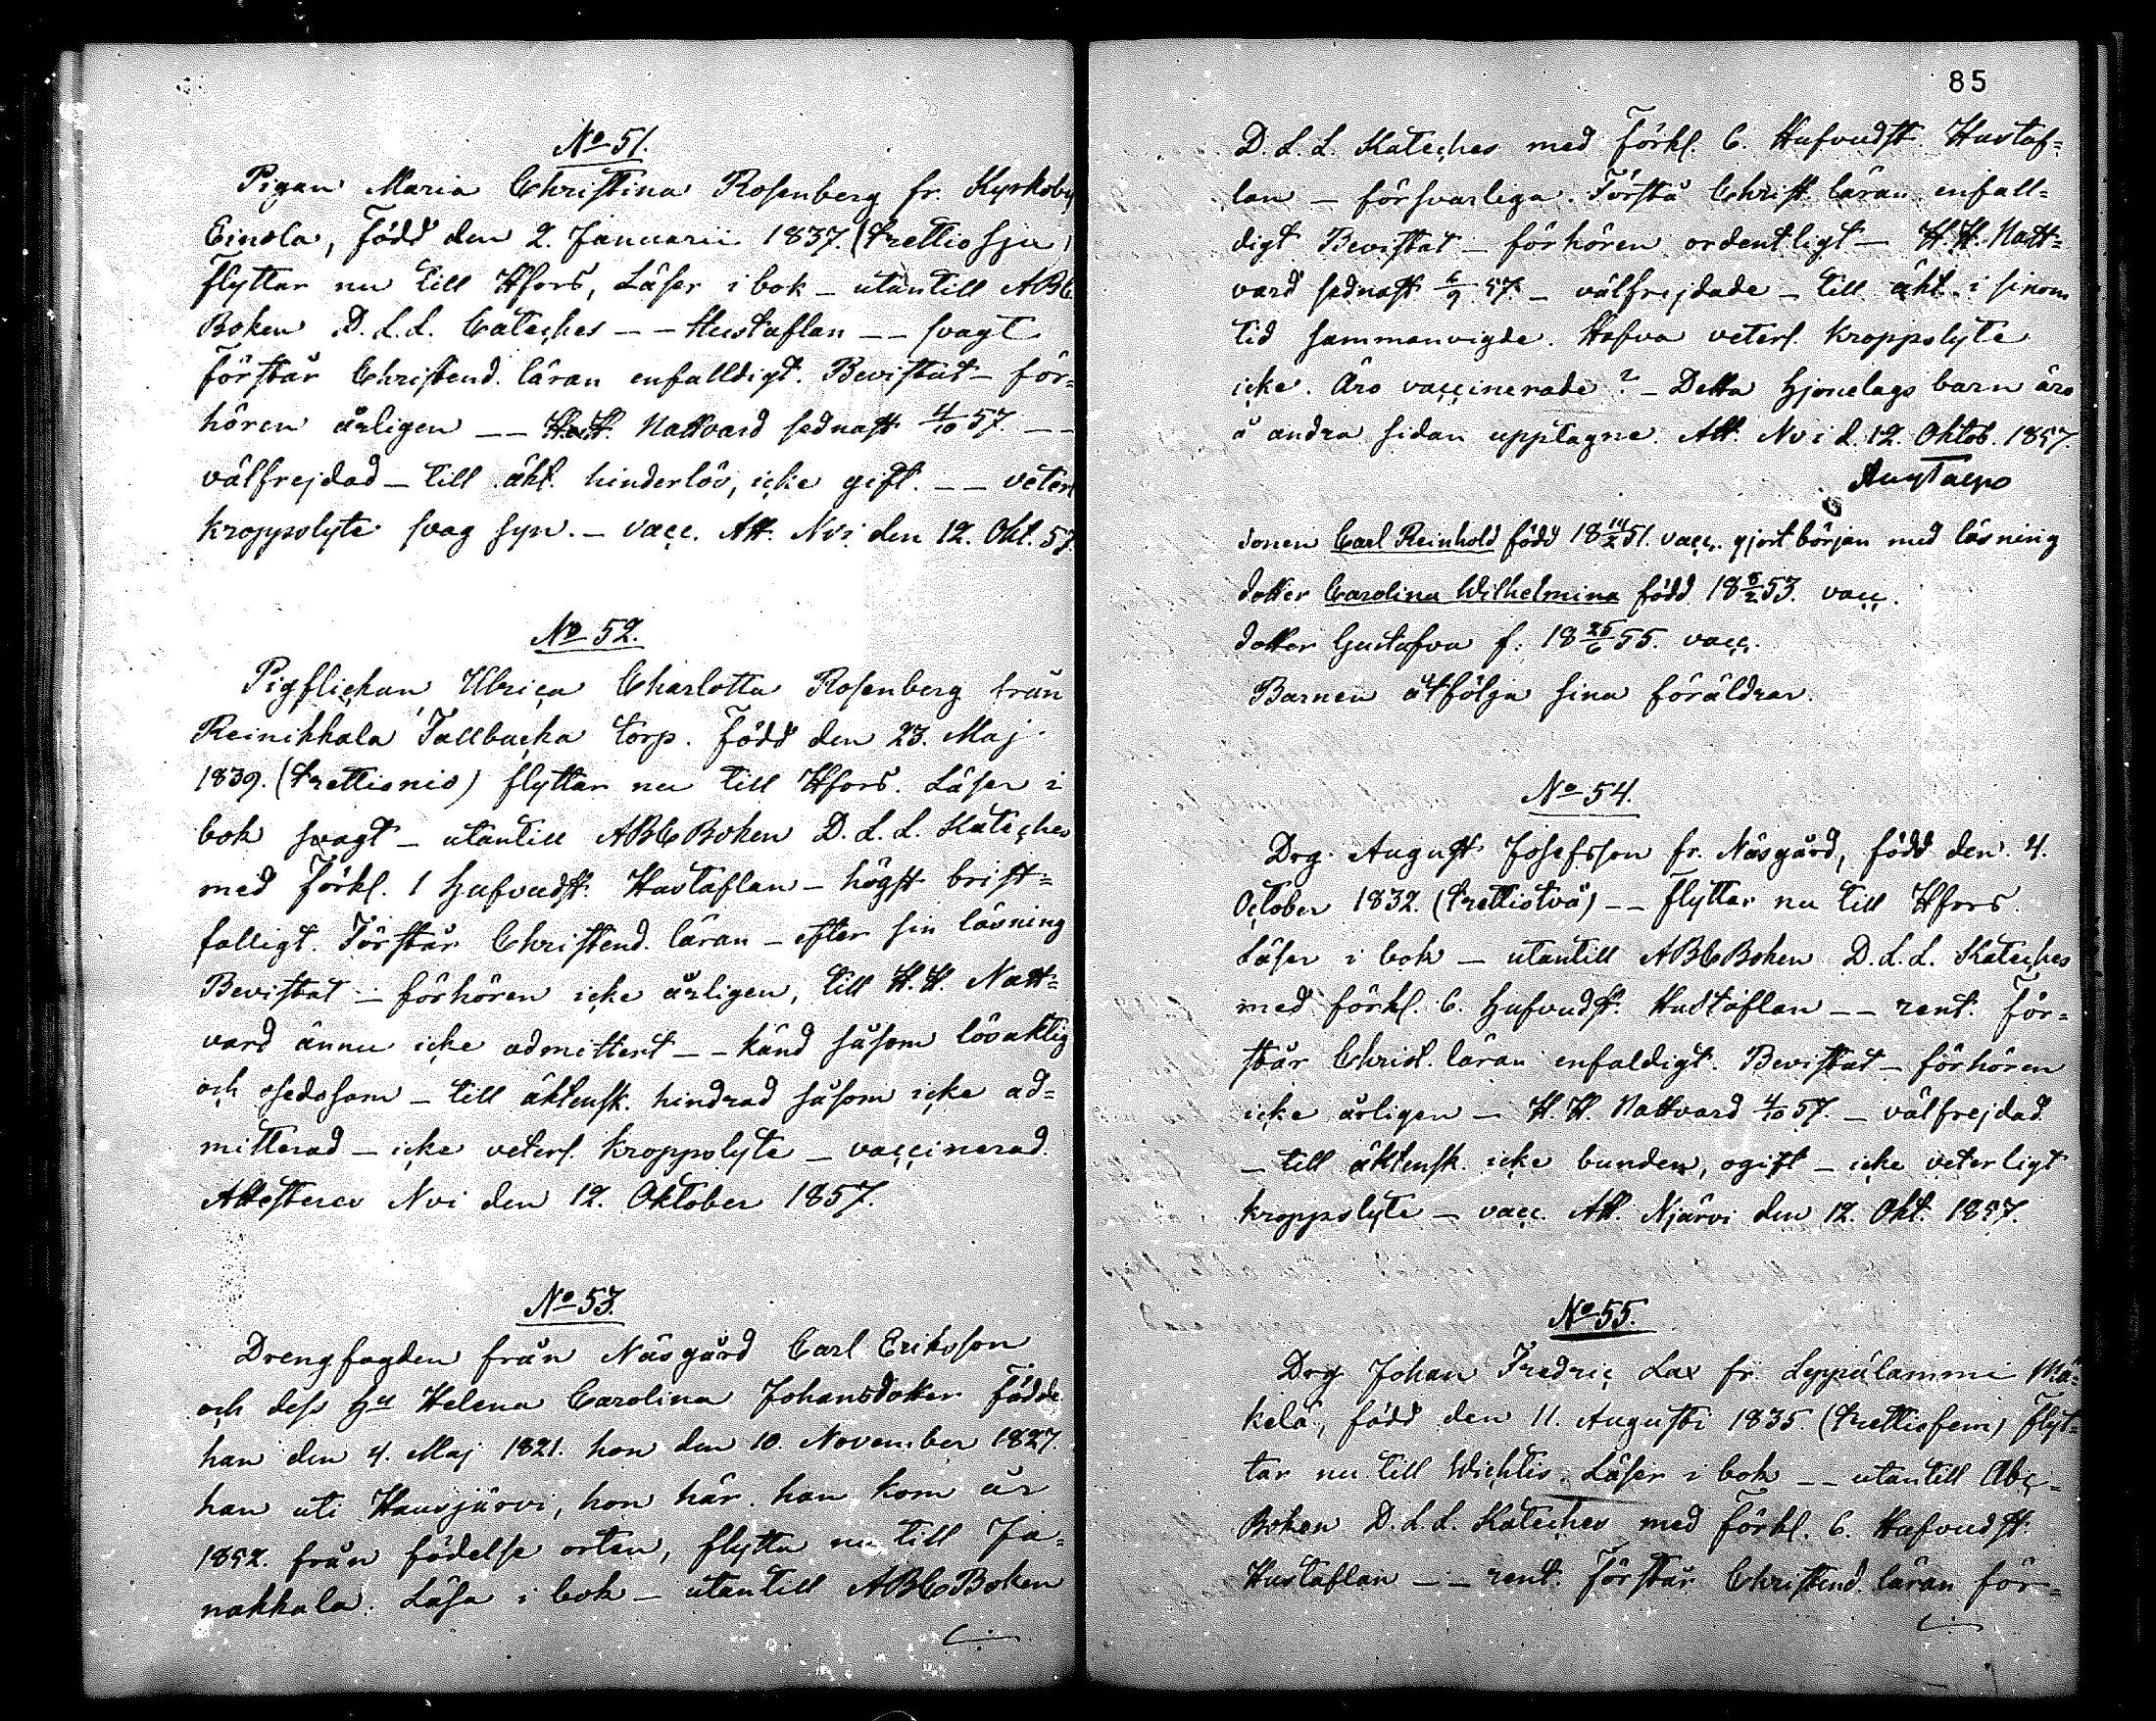 No 51.
Pigan Maria Christina Rosenberg fr. Kyrkoby
Einola, född den 2. Januarii 1837. (trettiosju)
flyttar nu till Hfors, Läser i bok – utantill ABC
Boken D. L. L. Cateches – – Hustaflan – – svagt
förstår Christend. läran enfalldigt. Bevistat – för-
hören årligen – – H. H. Nattvard sednast 4/10 57 – –
välfrejdad – till äkt. hinderlös, icke gift. – – veterl
kroppslyte svag syn. – vacc. Att. Nvi den 12. Okt. 57.
No 52.
Pigflickan Ulrica Charlotta Rosenberg från
Reinikkala Tallbacka torp. Född den 23. Maj
1839. (trettionio) flyttar nu till Hfors. Läser i
bok svagt – utantill ABC Boken D. L. L. Kateches
med förkl. 1 hufvudst. Hustaflan – högst brist=
falligt. Förstår Christend. läran – efter sin läsning
Bevistat – förhören icke årligen, till H. H. Natt=
vard ännu icke admittert – – känd såsom lösaktig
och osedosam – till äktensk. hindrad såsom icke ad=
mitterad – icke veterl. kroppslyte – vaccinerad.
Attesteres Nvi den 12. Oktober 1857.
No 53.
Drengfogden från Näsgård Carl Eriksson
och dess hu Helena Carolina Johansdotter födde
han den 4. Maj 1821. hon den 10. November 1827.
han uti Hausjärvi, hon här. han kom år
1852. från födelse orten, flytta nu till Ja=
nakkala. Läsa i bok – utantill ABC Boken
85
D. L. L. Kateches med förkl. 6. Hufvudst. Hustaf=
lan – försvarliga. Förstå Christ. läran enfall=
digt Bevistat – förhören ordentligt – H. H. Natt=
vard sednast 6/9 57. – välfrejdade – till äkt. i sinom
tid sammanvigde. Hafva veterl. kroppslyte
icke. Äro vaccinerade? – Detta Hjonelags barn äro
å andra sidan upptagne. Att. Nvi d. 12. Oktob. 1857.
sonen Carl Reinhold född 18 14/2 51. vacc. gjort början med läsning
dotter Carolina Wilhelmina född 18 8/2 53. vacc.
dotter Gustafva f: 18 25/6 55. vacc.
Barnen åtfölja sina föräldrar.
No 54.
Drg. August Josefsson fr. Näsgård, född den 4.
October 1832. (trettiotvå) – – flyttar nu till Hfors.
Läser i bok – utantill ABC Boken D. L. L. Kateches
med förkl. 6. hufvudst. Hustaflan – – rent. För=
står Christ. läran enfaldigt. Bevistat – förhören
icke årligen – H. H. Nattvard 4/10 57. – välfrejdad.
– till äktensk. icke bunden, ogift – icke veterligt
kroppslyte – vacc. Att. Njärvi den 12. Okt. 1857.
No 55.
Drg Johan Fredric Lax fr. Leppälammi Mä=
kelä, född den 11. Augusti 1835. (trettiofem) flyt=
tar nu till Wichtis. Läser i bok – – utantill Abc=
Boken D. L. L. Kateches med förkl. 6. Hufvudst.
Hustaflan – – rent. Förstår Christend. läran för=